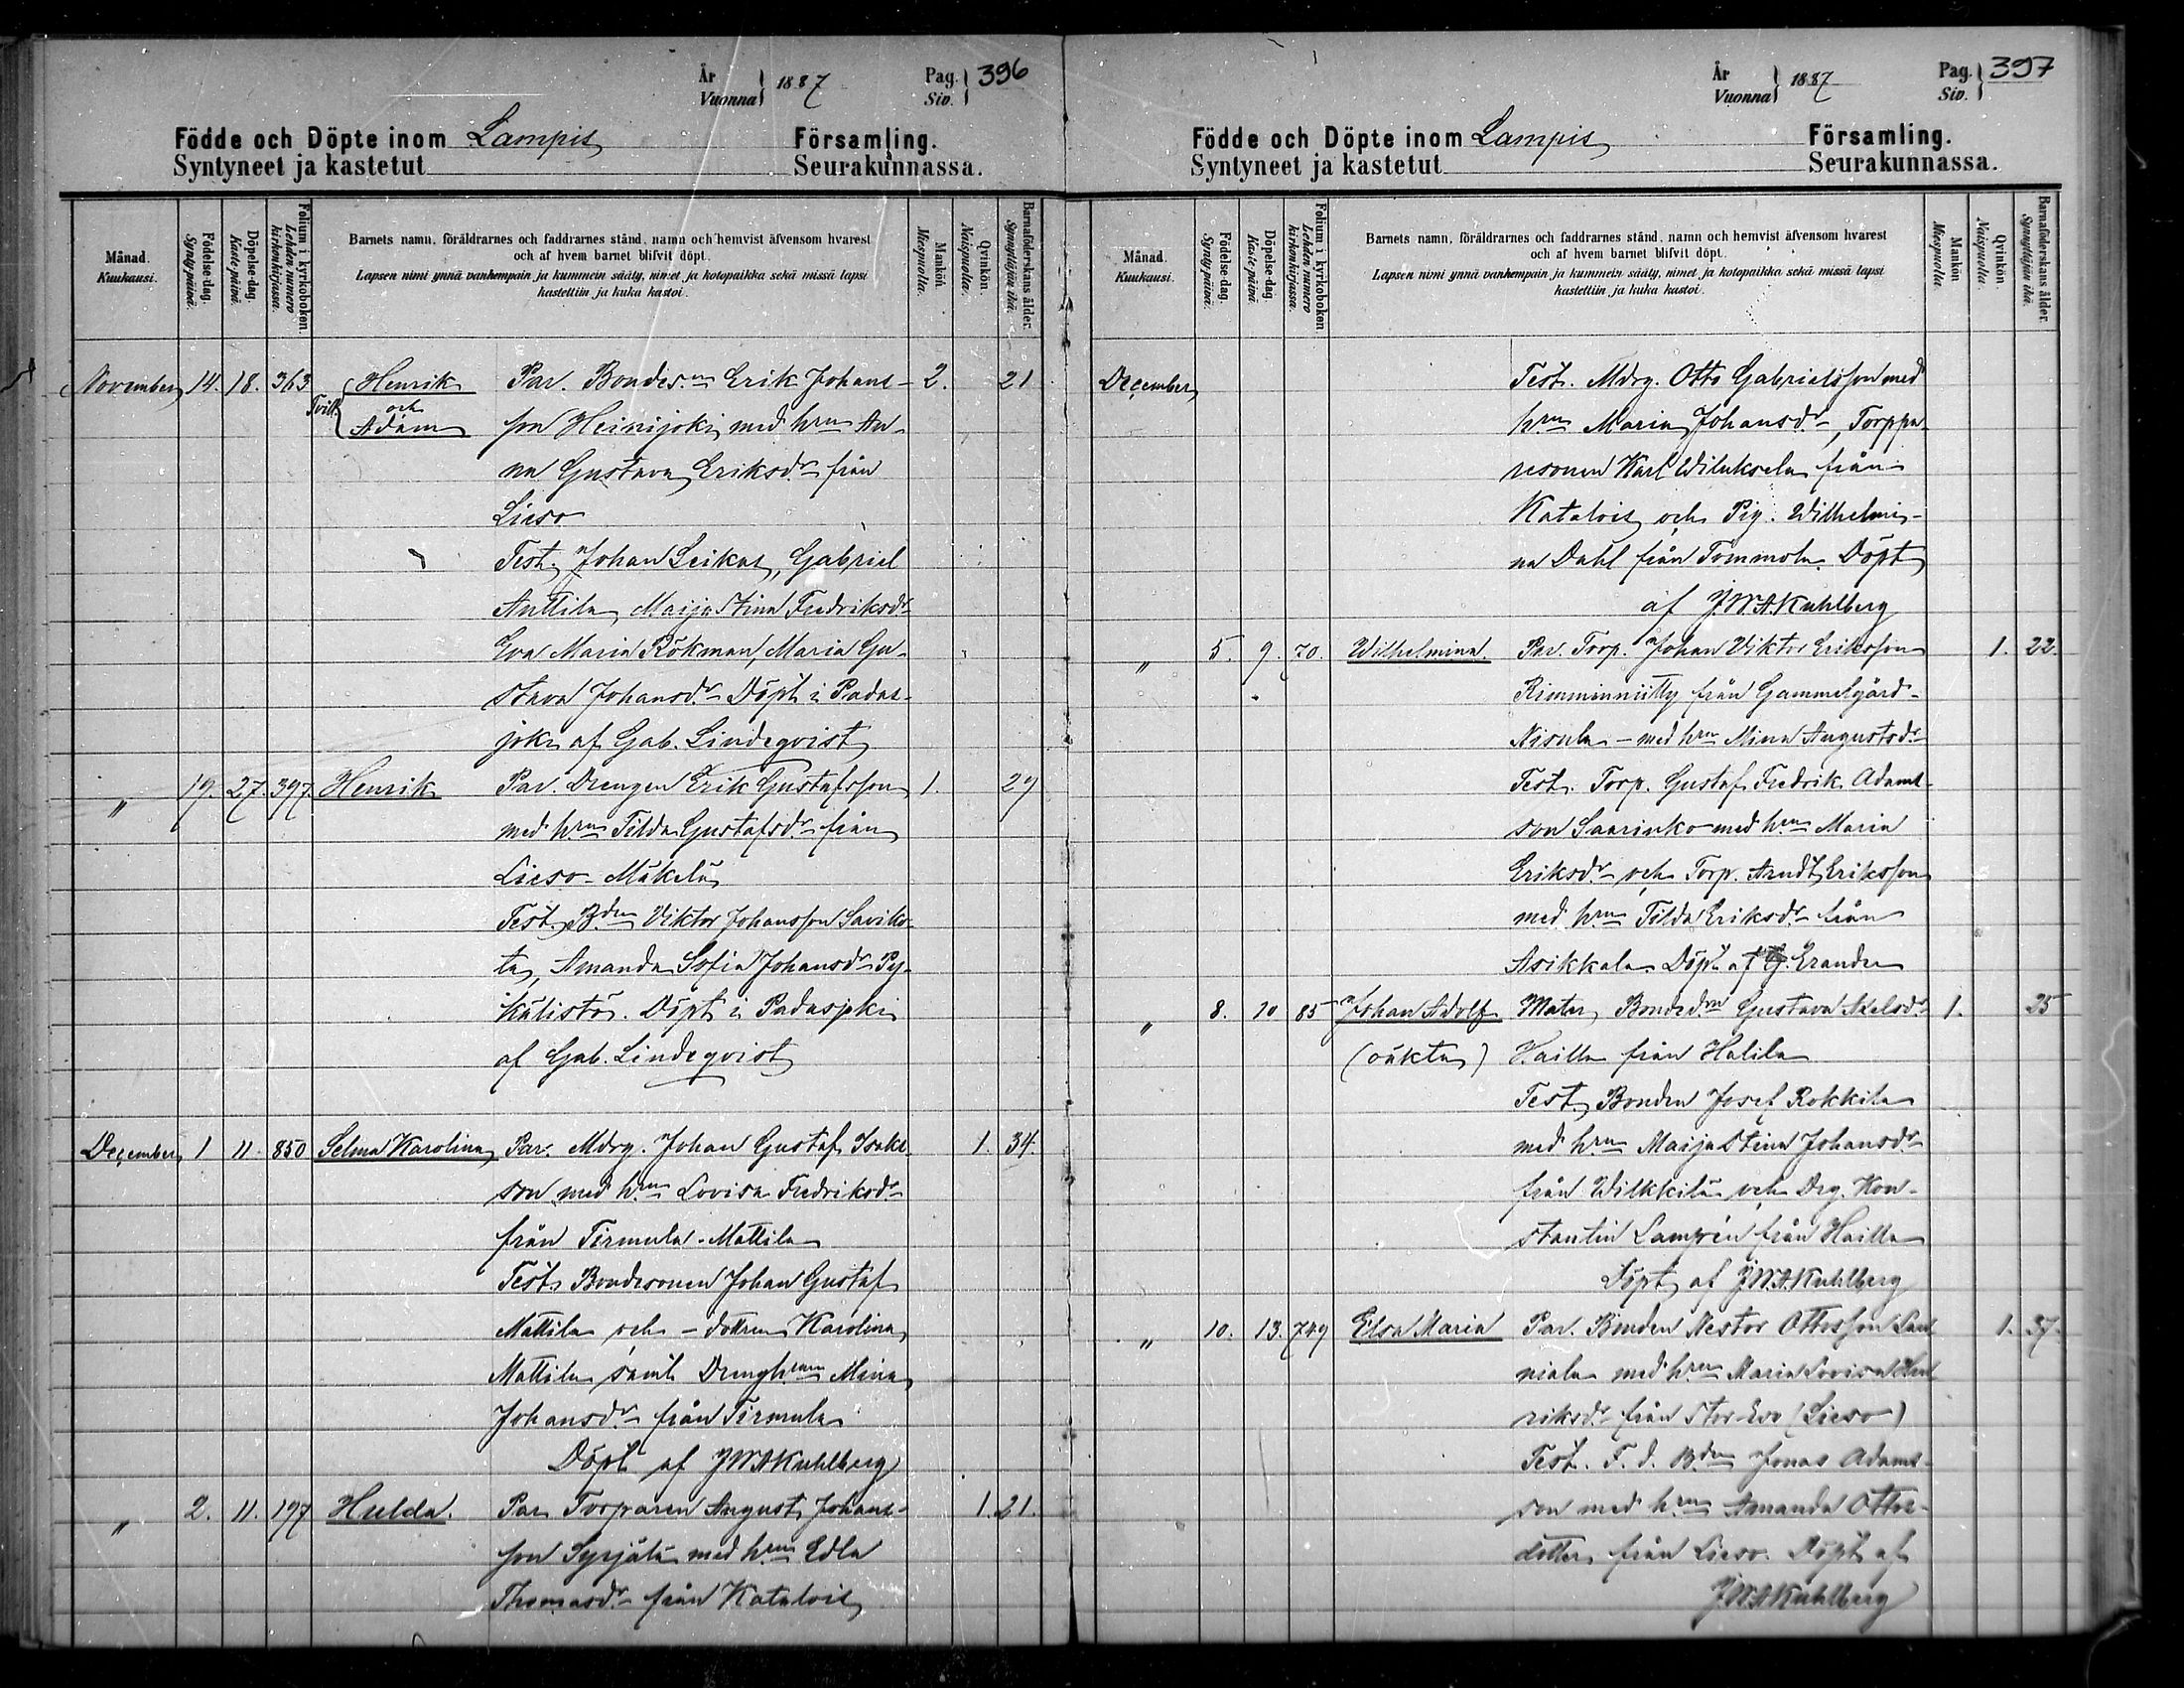 År
Vuonna
1887
Pag.
Siv.
396
Födde och Döpte inom Lampis Församling.
Syntyneet ja kastetut Seurakunnassa.
Månad.
Kuukausi.
Födelse-dag.
Synty-päivä.
Döpelse-dag.
Kaste-päivä.
Folium i kyrkoboken.
Lehden numero kirkonkirjassa.
Barnets namn, föräldrarnes och faddrarnes stånd, namn och hemvist äfvensom hvarest
och af hvem barnet blifvit döpt.
Lapsen nimi ynnä vanhempain ja kummein sääty, nimet ja kotopaikka sekä missä lapsi
kastettiin ja kuka kastoi.
Mankön.
Miespuolia.
Qvinkön.
Naispuolia.
Barnaföderskans ålder.
Synnyttäjän ikä.
November 14. 18. 363 Henrik Par. Bondes:n Erik Johans- 2. 21
Tvill. och
Adam son Heinijoki med h:n An-
na Gustava Eriksd:r från
Lieso
Test. Johan Leikas, Gabriel
Anttila, Maija Stina Fredriksd:r
Eva Maria Rökman, Maria Gu-
stava Johansd:r Döpt i Padas-
joki af Gab. Lindeqvist
" 19. 27. 397 Henrik Par. Drengen Erik Gustafsson 1. 29
med h:n Tilda Gustafsd:r från
Lieso-Mäkelä
Test. B:den Viktor Johansson Saviko-
ta, Amanda Sofia Johansd:r Py-
kälistö. Döpt i Padasjoki
af Gab. Lindeqvist
December 1 11. 850 Selma Karolina Par. Mdrg. Johan Gustaf Isaks- 1. 34.
son med h:n Lovisa Fredriksd:r
från Tirmula-Mattila
Test. Bondesonen Johan Gustaf
Mattila och -dottren Karolina
Mattila samt Drengh:n Mina
Johansd:r från Tirmula
Döpt af J W A Kuhlberg
" 2. 11. 197 Hulda. Par. Torparen August Johans- 1. 21.
son Syrjälä med h:n Edla
Thomasd:r från Katalois
År
Vuonna
1887
Pag.
Siv.
397
Födde och Döpte inom Lampis Församling.
Syntyneet ja kastetut Seurakunnassa.
Månad.
Kuukausi.
Födelse-dag.
Synty-päivä.
Döpelse-dag.
Kaste-päivä.
Folium i kyrkoboken.
Lehden numero kirkonkirjassa.
Barnets namn, föräldrarnes och faddrarnes stånd, namn och hemvist äfvensom hvarest
och af hvem barnet blifvit döpt.
Lapsen nimi ynnä vanhempain ja kummein sääty, nimet ja kotopaikka sekä missä lapsi
kastettiin ja kuka kastoi.
Mankön.
Miespuolia.
Qvinkön.
Naispuolia.
Barnaföderskans ålder.
Synnyttäjän ikä.
December Test. Mdrg. Otto Gabrielsson med
h:n Maria Johansd:r, Torppa-
resonen Karl Wiluksela från
Katalois och Pig. Wilhelmi-
na Dahl från Tommola. Döpt
af J W A Kuhlberg
" 5. 9. 70. Wilhelmina. Par. Torp. Johan Viktor Eriksson 1. 22.
Rimminniitty från Gammelgård-
Nisula - med h:n Mina Augustsd:r
Test. Torp. Gustaf Fredrik Adams-
son Saarinko med h:n Maria
Eriksd:r och Torp. Arndt Eriksson
med h:n Tilda Eriksd:r från
Asikkala Döpt af Erander
" 8. 10 85 Johan Adolf Mater Bonded:n Gustava Axelsd:r 1. 25
(oäkta) Hailla från Halila
Test. Bonden Josef Rokkila
med h:n Maija Stina Johansd:r
från Wilkkilä och Drg. Kon-
stantin Lampén från Hailla
Döpt af J W A Kuhlberg
" 10. 13. 749 Elsa Maria Par. Bonden Nestor Ottosson Lau- 1. 37.
niala med h:n Maria Lovisa Hen-
riksd:r från Stor-Evo (Lieso)
Test. F. d. B:den Jonas Adams-
son med h:n Amanda Ottos-
dotter från Lieso. Döpt af
J W A Kuhlberg